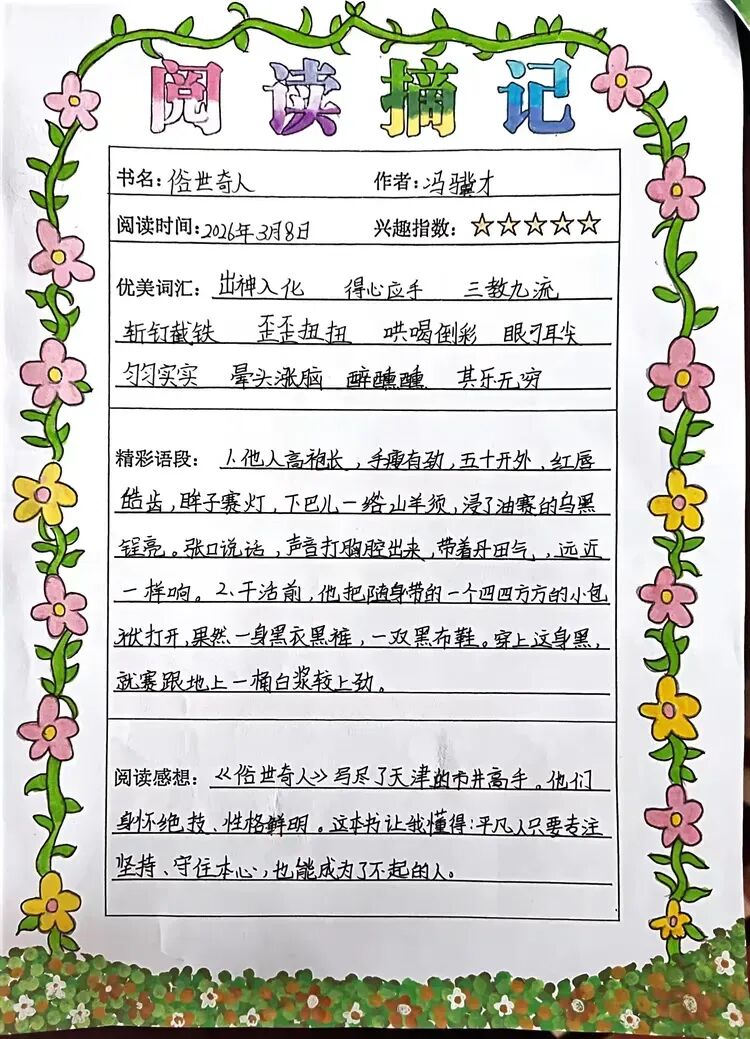 阅读摘记
书名：俗世奇人 作者：冯骥才
阅读时间：2026年3月8日 兴趣指数：☆☆☆☆☆
优美词汇：出神入化 得心应手 三教九流
斩钉截铁 歪歪扭扭 哄喝倒彩 眼刁耳尖
匀匀实实 晕头涨脑 醉醺醺 其乐无穷
精彩语段：1.他人高袍长，手瘦有劲，五十开外、红唇
皓齿，眸子赛灯，下巴儿一绺山羊须，浸了油赛的乌黑
锃亮。张口说话，声音打胸腔出来，带着丹田气，远近
一样响。2.干活前，他把随身带的一个四四方方的小包
袱打开，果然一身黑衣黑裤，一双黑布鞋。穿上这身黑，
就赛跟地上一桶白浆较上劲。
阅读感想：《俗世奇人》写尽了天津的市井高手。他们
身怀绝技、性格鲜明。这本书让我懂得：平凡人只要专注
坚持、守住本心，也能成为了不起的人。